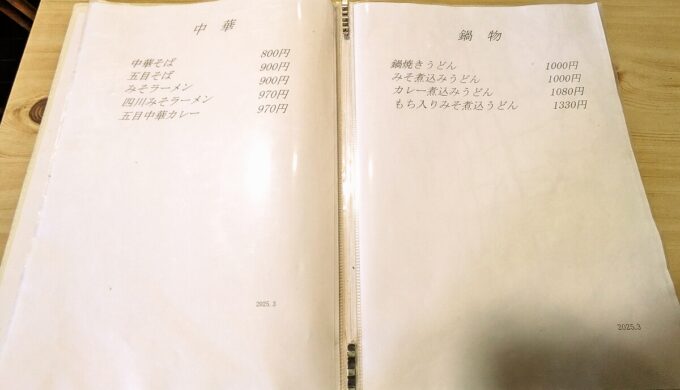 中 華
中華そば 800円
五目そば 900円
みそラーメン 900円
四川みそラーメン 970円
五目中華カレー 970円
2025.3
鍋 物
鍋焼きうどん 1000円
みそ煮込みうどん 1000円
カレー煮込みうどん 1080円
もち入りみそ煮込うどん 1330円
2025.3